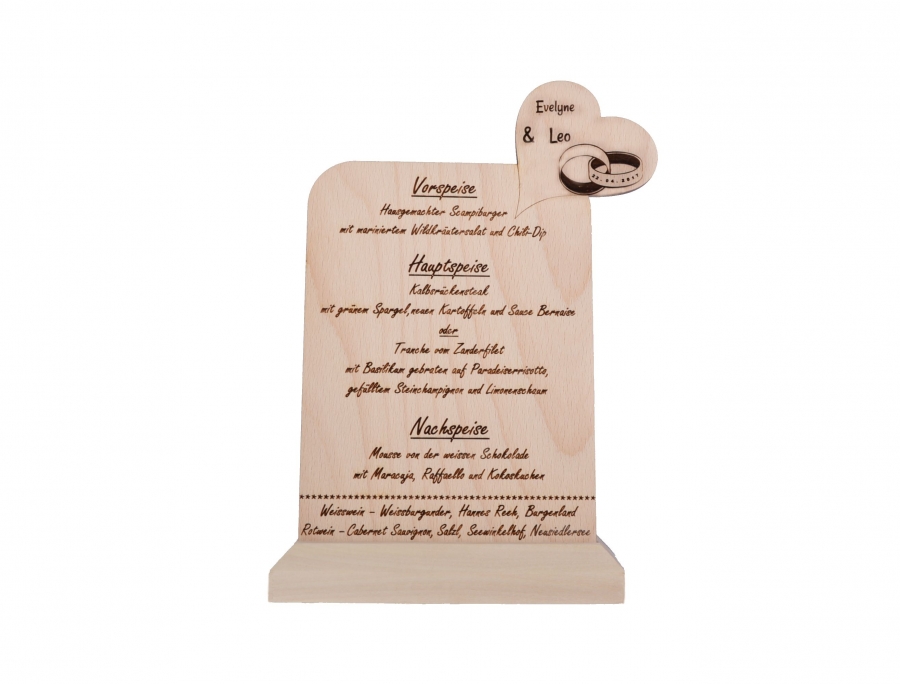 Evelyne
& Leo
22.04.2017
Vorspeise
Hausgemachter Scampiburger
mit mariniertem Wildkräutersalat und Chili-Dip
Hauptspeise
Kalbsrückensteak
mit grünem Spargel,neuen Kartoffeln und Sauce Bernaise
oder
Tranche vom Zanderfilet
mit Basilikum gebraten auf Paradeiserrisotto,
gefülltem Steinchampignon und Limonenschaum
Nachspeise
Mousse von der weissen Schokolade
mit Maracuja, Raffaello und Kokoskuchen
Weisswein - Weissburgunder, Hannes Reeh, Burgenland
Rotwein - Cabernet Sauvignon, Salzl, Seewinkelhof, Neusiedlersee